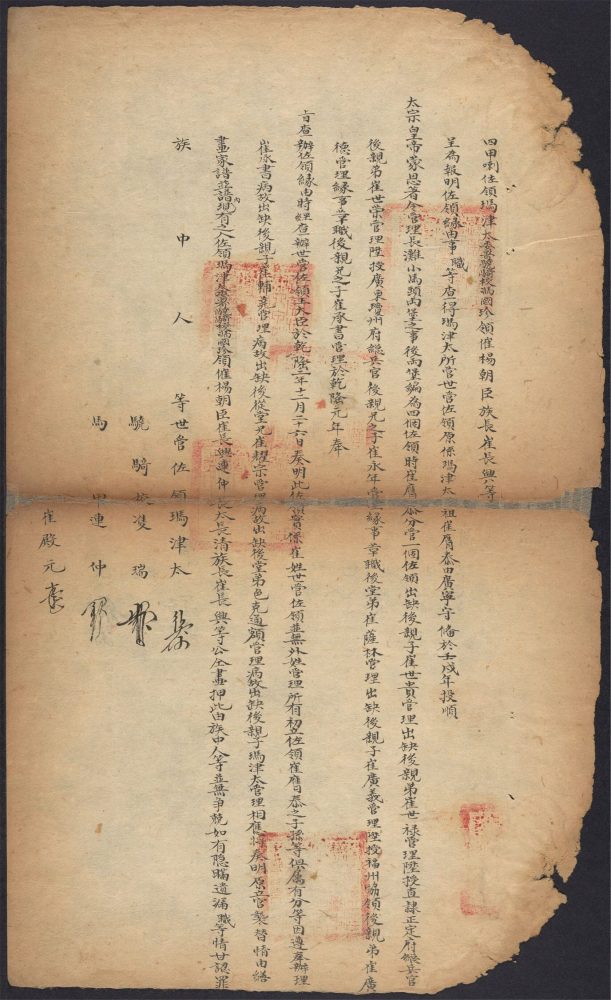 四甲喇佐領瑪津太委署驍騎校馮國珍領催楊朝臣族長崔長興等
呈為報明佐領緣由事職等查得瑪津太所管世管佐領原係瑪津太祖崔膺泰由廣寧守備於壬戌年投順
太宗皇帝蒙恩著令管理長灘小馬頭兩堡之事後兩堡編為四個佐領時崔膺泰分管一個佐領出缺後親子崔世貴管理出缺後親弟崔世祿管理陞授直隸正定府總兵官
後親弟崔世榮管理陞授廣東瓊州府總兵官後親兄之子崔永年管理緣事革職後堂弟崔薩林管理出缺後親子崔廣義管理陞授福州協領後親弟崔廣
德管理緣事革職後親兄之子崔承書管理於乾隆元年奉
旨查辦佐領緣由時經查辦世管佐領王大臣於乾隆二年十二月二十六日奏明此佐領實係崔姓世管佐領並無外姓管理所有初立佐領崔膺泰之子孫等俱屬有分等因遵奉辦理
崔承書病故出缺後親子崔輔堯管理病故出缺後從堂兄崔耀宗管理病故出缺後堂弟色克通額管理病故出缺後親子瑪津太管理相應將奏明原立官襲替情由繕
畫家譜並譜內有之人佐領瑪津太委署驍騎校馮國珍領催楊朝臣崔長興連仲崔長太長清族長崔長興等公仝畫押此由族中人等並無爭競如有隱瞞遺漏職等情甘認罪
族中人等世管佐領瑪津太
驍騎校瑞
馬甲連仲
崔殿元